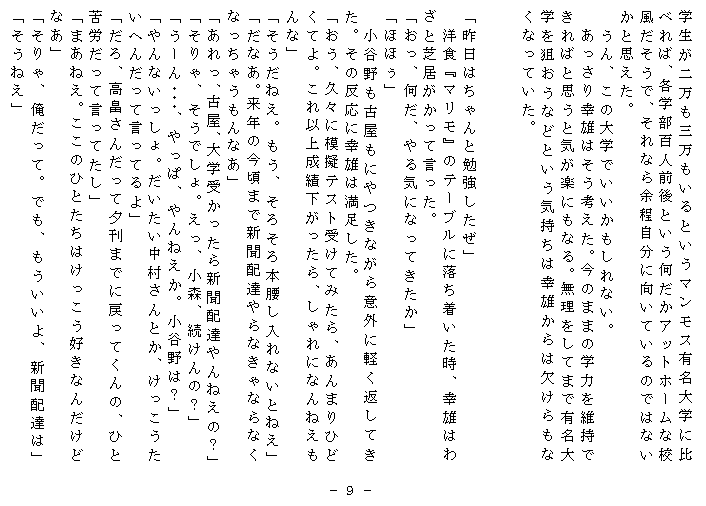 学生が二万も三万もいるというマンモス有名大学に比
べれば、各学部百人前後という何だかアットホームな校
風だそうで、それなら余程自分に向いているのではない
かと思えた。
　うん、この大学でいいかもしれない。
　あっさり幸雄はそう考えた。今のままの学力を維持で
きればと思うと気が楽にもなる。無理をしてまで有名大
学を狙おうなどという気持ちは幸雄からは欠けらもな
くなっていた。
「昨日はちゃんと勉強したぜ」
　洋食『マリモ』のテーブルに落ち着いた時、幸雄はわ
ざと芝居がかって言った。
「おっ、何だ、やる気になってきたか」
「ほほぅ」
　小谷野も古屋もにやつきながら意外に軽く返してき
た。その反応に幸雄は満足した。
「おう、久々に模擬テスト受けてみたら、あんまりひど
くてよ。これ以上成績下がったら、しゃれになんねえも
んな」
「そうだねえ。もう、そろそろ本腰し入れないとねえ」
「だなあ。来年の今頃まで新聞配達やらなきゃならなく
なっちゃうもんなあ」
「あれっ、古屋、大学受かったら新聞配達やんねえの？」
「そりゃ、そうでしょ。えっ、小森、続けんの？」
「うーん…、やっぱ、やんねえか。小谷野は？」
「やんないっしょ。だいたい中村さんとか、けっこうた
いへんだって言ってるよ」
「だろ、高畠さんだって夕刊までに戻ってくんの、ひと
苦労だって言ってたし」
「まあねえ。ここのひとたちはけっこう好きなんだけど
なあ」
「そりゃ、俺だって。でも、もういいよ、新聞配達は」
「そうねえ」
- 9 -